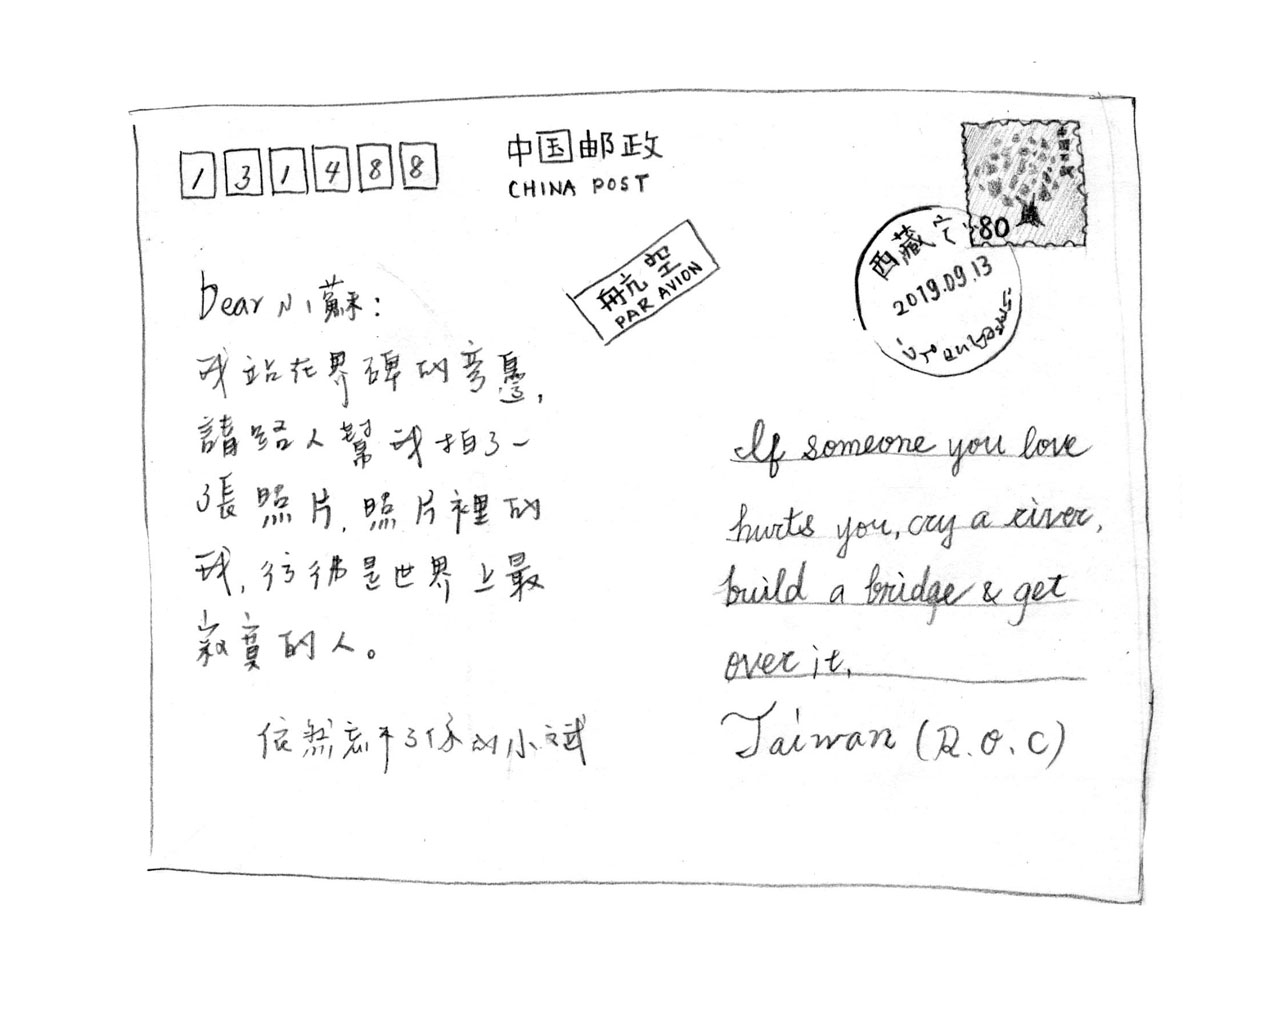 131488
中国邮政
CHINA POST
80
航空
PAR AVION
西藏
2019.09.13
Dear 小蘇：
我站在界碑的旁邊，
請路人幫我拍了一
張照片，照片裡的
我，彷彿是世界上最
寂寞的人。
依然忘不了你的小斌
If someone you love
hurts you, cry a river,
build a bridge & get
over it.
Taiwan (R.O.C)